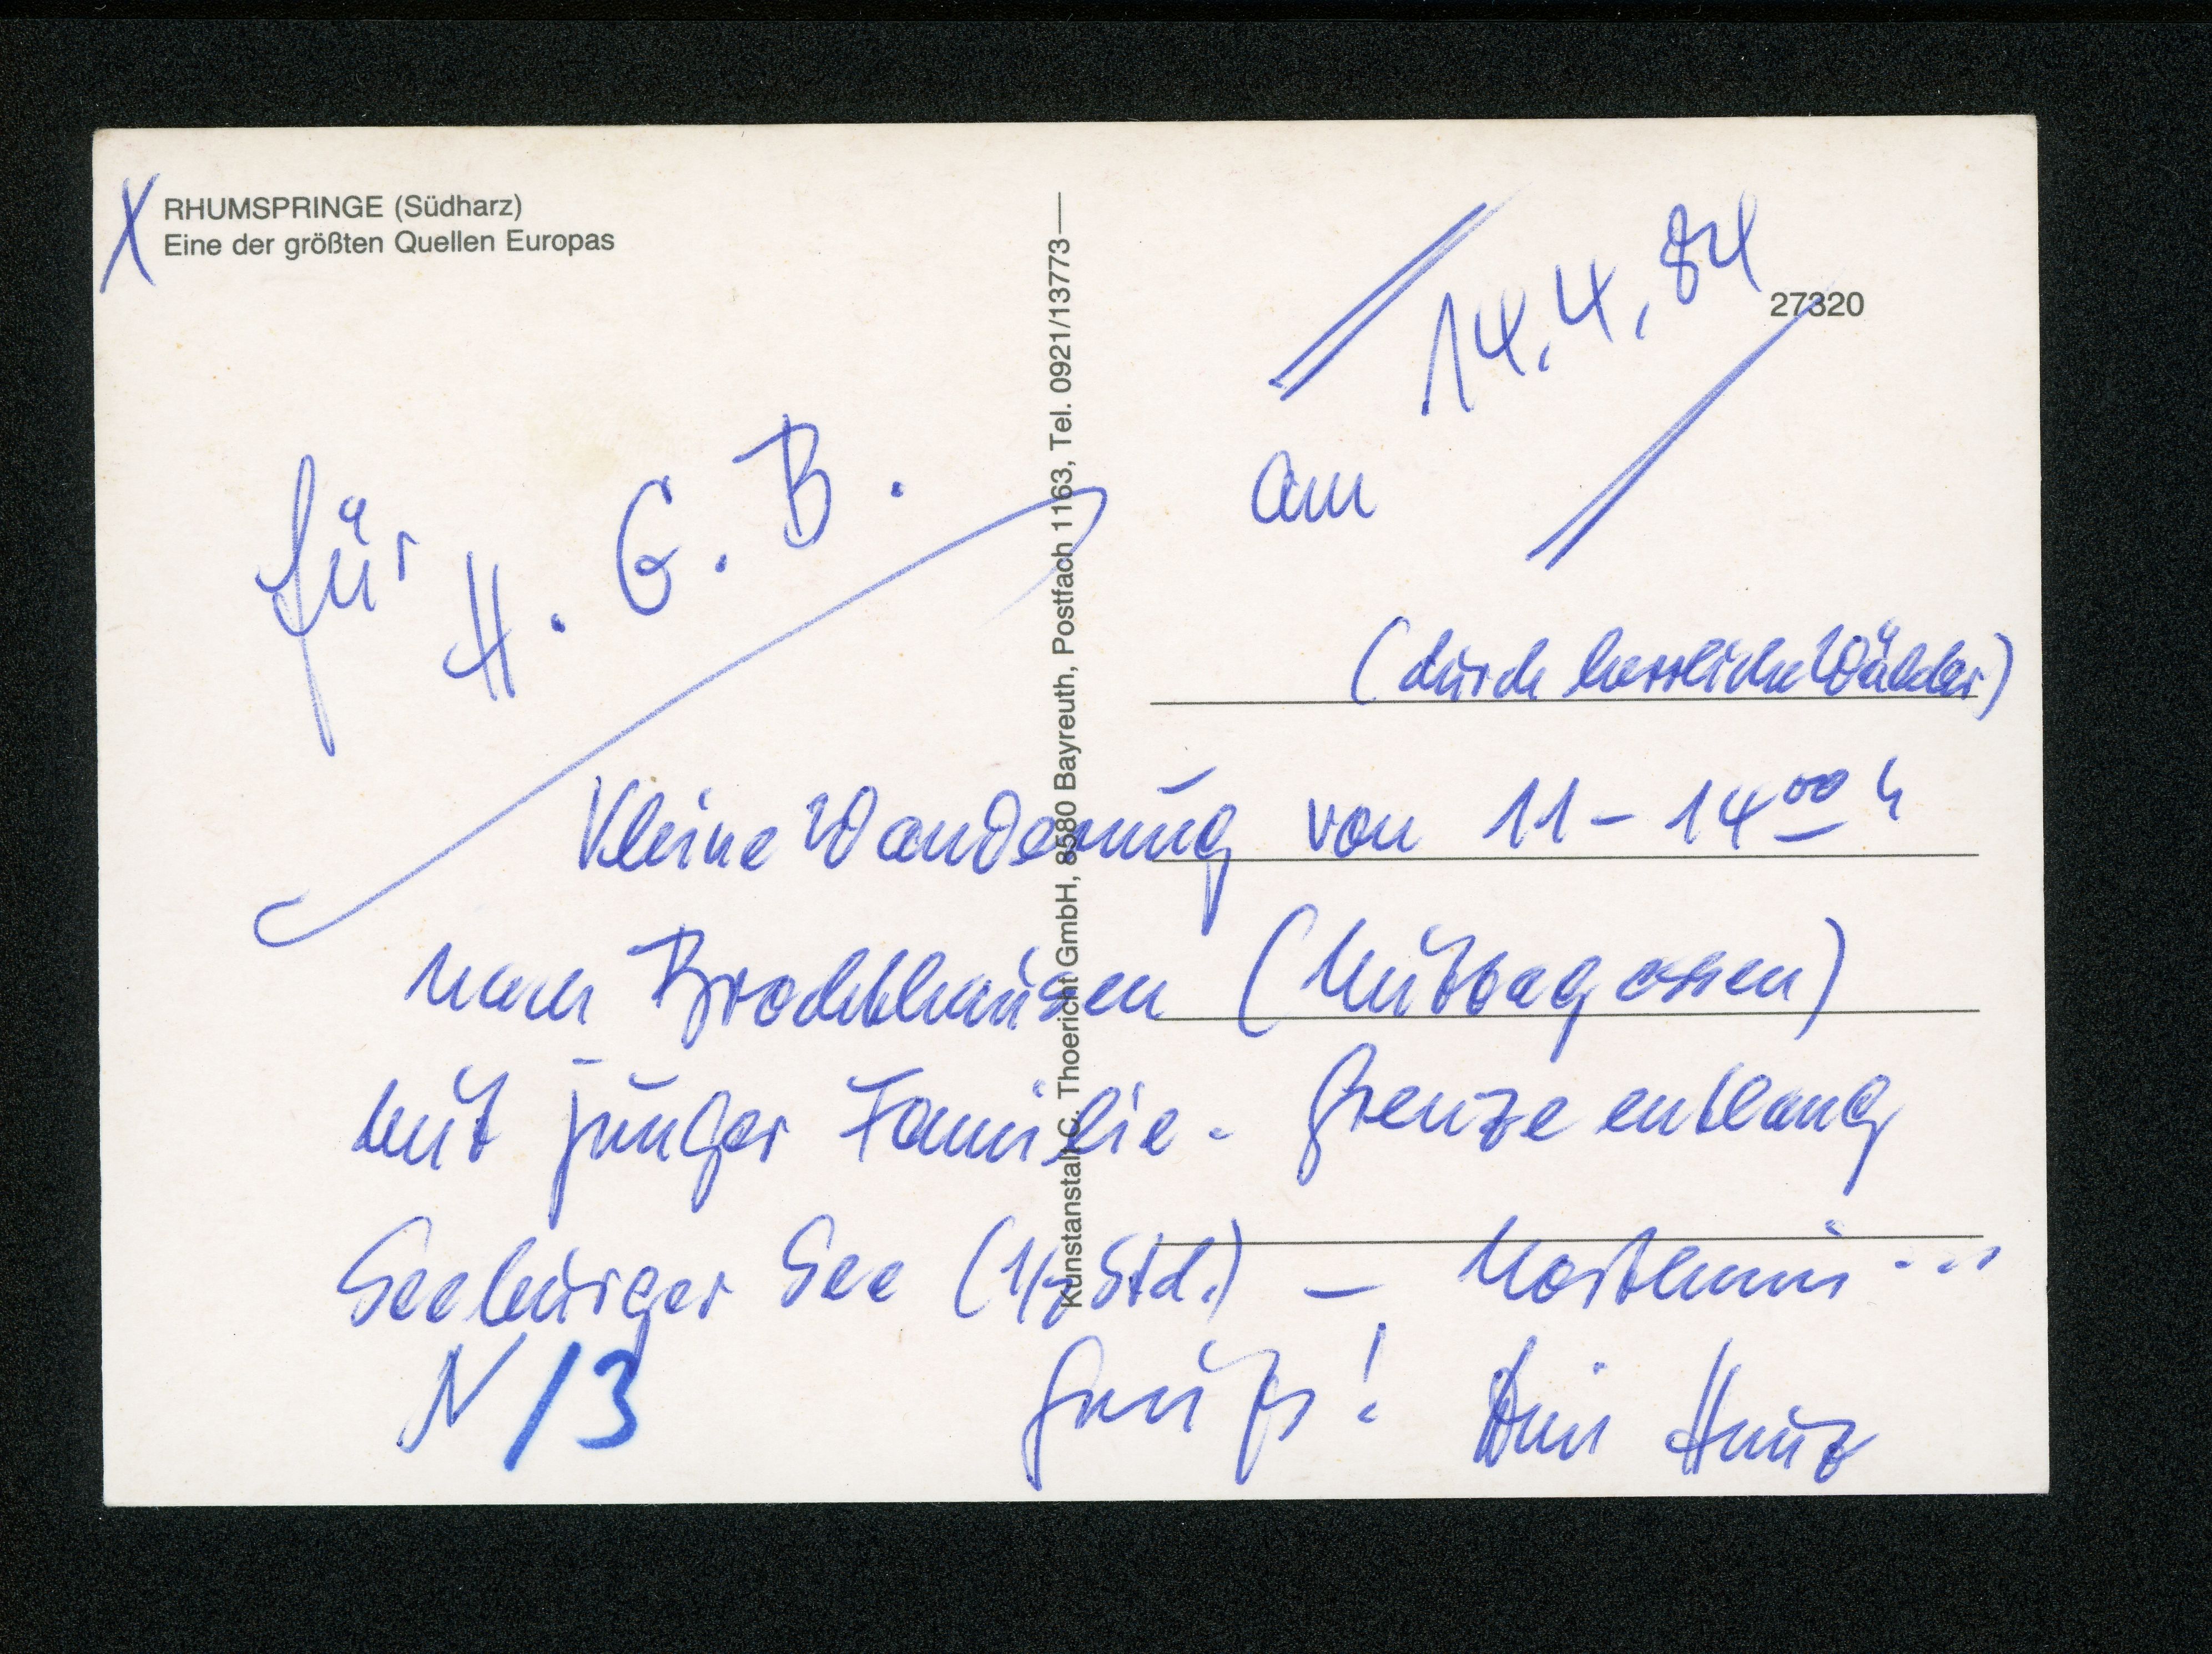 X RHUMSPRINGE (Südharz)
Eine der größten Quellen Europas
27320
14.4.84
am
für
H. G. B.
(durch herrliche Wälder)
Kleine Wanderung von 11 - 14 00 h
nach Brochthausen (Mittagessen)
mit junger Familie - Grenze entlang
Seeburger See (1/2 Std.) - Northeim ...
N/13
Gruß! Dein Heinz
Kunstanstalt C. Thoericht GmbH, 8580 Bayreuth, Postfach 1163, Tel. 0921/13773